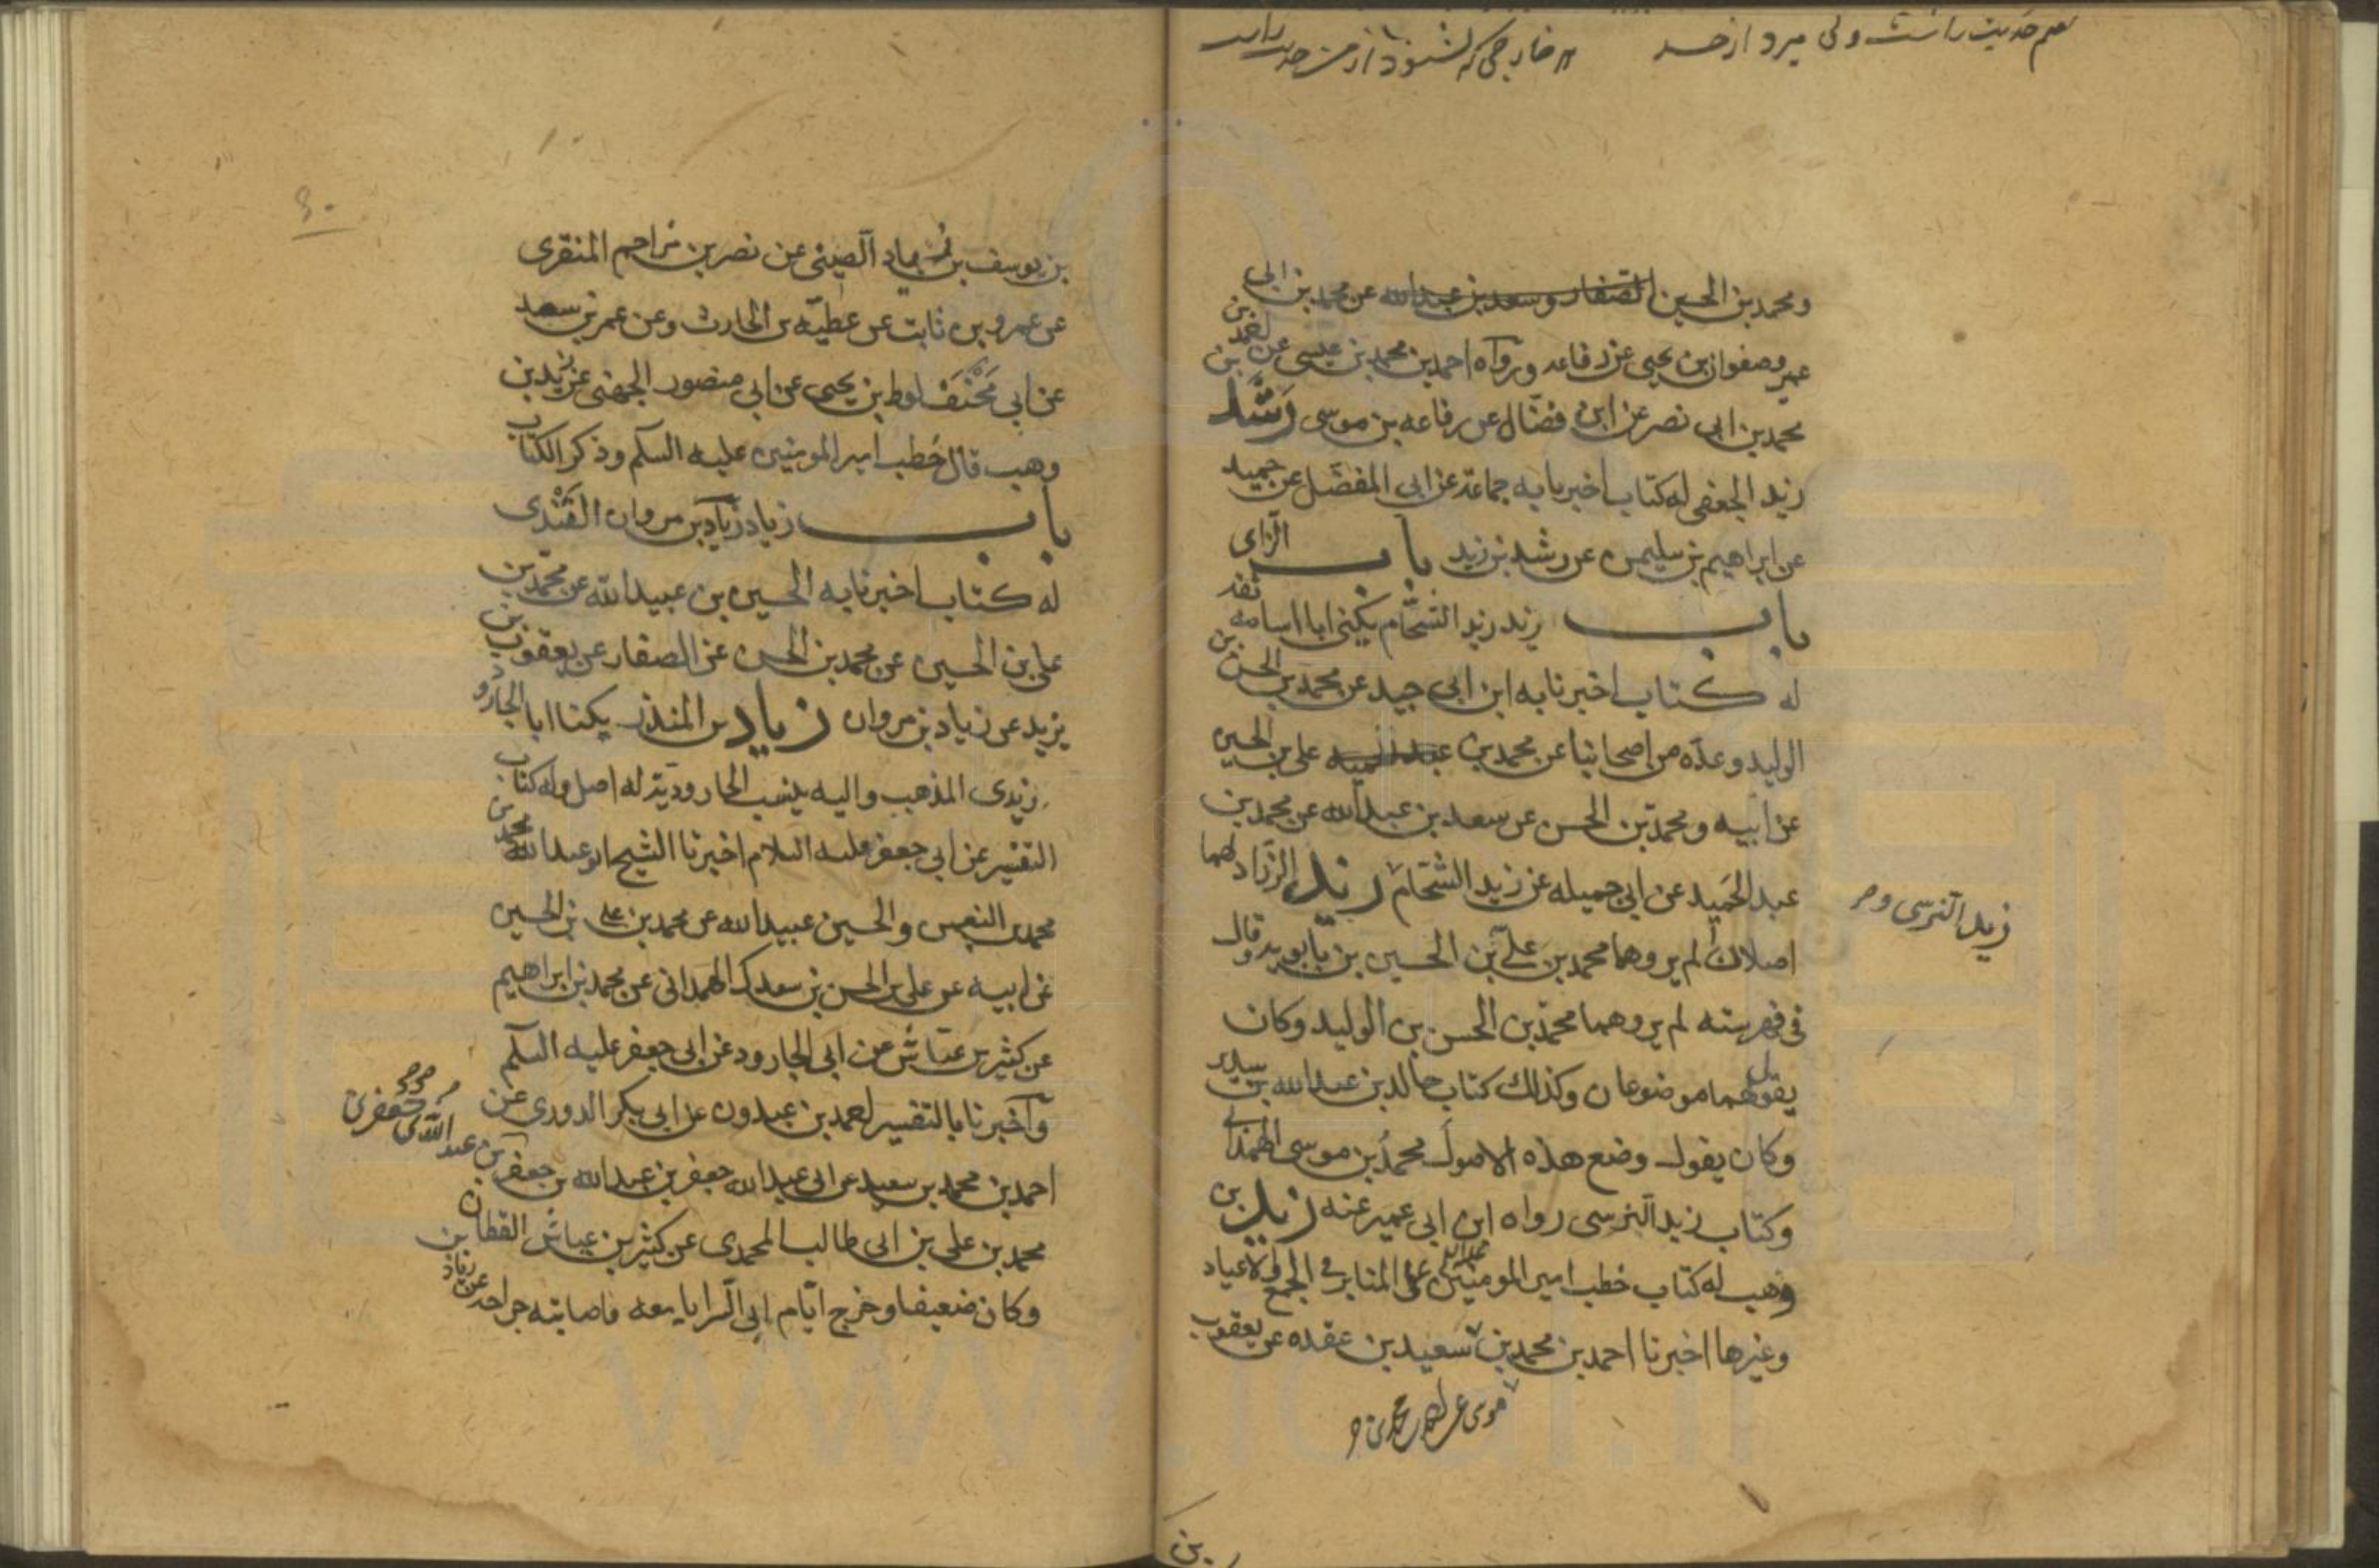 ومحمد بن الحسن الصفار وسعد بن عبد الله عن محمد بن ابى
عمير وصفوان بن يحيى عن رفاعه ورواه احمد بن محمد بن عيسى عن احمد بن
محمد بن ابى نصر عن ابن فضال عن رفاعه بن موسى رشد بن
زيد الجعفى له كتاب اخبرنا به جماعة عن ابى المفضل عن حميد
عن ابراهيم بن سليمن عن رشد بن زيد باب الزاى
باب زيد زيد الشحام يكنى ابا اسامه ثقه
له كتاب اخبرنا به ابن ابى جيد عن محمد بن الحسن بن
الوليد وعدة من اصحابنا عن محمد بن على بن الحسين
عن ابيه ومحمد بن الحسن عن سعد بن عبد الله عن محمد بن
عبد الحميد عن ابى جميله عن زيد الشحام زيد الزراد لهما
زيد النرسى و
اصلان لم يروهما محمد بن على بن الحسين بن بابويه وقال
فى فهرسته لم يروهما محمد بن الحسن بن الوليد وكان
يقول هما موضوعان وكذلك كتاب خالد بن عبد الله بن سدير
وكان يقول وضع هذه الاصول محمد بن موسى الهمدانى
وكتاب زيد النرسى رواه ابن ابى عمير عنه زيد بن
وهب له كتاب خطب امير المومنين على المنابر فى الجمع والاعياد
وغيرها اخبرنا احمد بن محمد بن سعيد بن عقده عن يعقوب
بن
بن يوسف بن زياد الضبى عن نصر بن مزاحم المنقرى
عن عمرو بن ثابت عن عطيه بن الحارث وعن عمر بن سعد
عن ابى مخنف لوط بن يحيى عن ابى منصور الجهنى عن زيد بن
وهب قال خطب امير المومنين عليه السلم وذكر الكتاب
باب زياد زياد بن مروان القندى
له كتاب اخبرنا به الحسين بن عبيد الله عن محمد بن
على بن الحسين عن محمد بن الحسن عن الصفار عن يعقوب بن
يزيد عن زياد بن مروان زياد بن المنذر يكنا ابا الجارود
زيدى المذهب واليه ينسب الجارودية له اصل وله كتاب
التفسير عن ابى جعفر عليه السلام اخبرنا الشيخ ابو عبد الله محمد بن
محمد بن النعمن والحسين عبيد الله عن محمد بن على بن الحسين
عن ابيه عن على بن الحسن بن سعدك الهمدانى عن محمد بن ابراهيم
عن كثير بن عياش عن ابى الجارود عن ابى جعفر عليه السلم
واخبرنا بالتفسير احمد بن عبدون عن ابى بكر الدورى عن
احمد بن محمد بن سعيد عن ابى عبد الله جعفر بن عبد الله بن جعفر بن عبد الله بن جعفر بن
محمد بن على بن ابى طالب المحمدى عن كثير بن عياش القطان
وكان ضعيفا وخرج ايام ابى السرايا معه فاصابته جراحه عن زياد بن